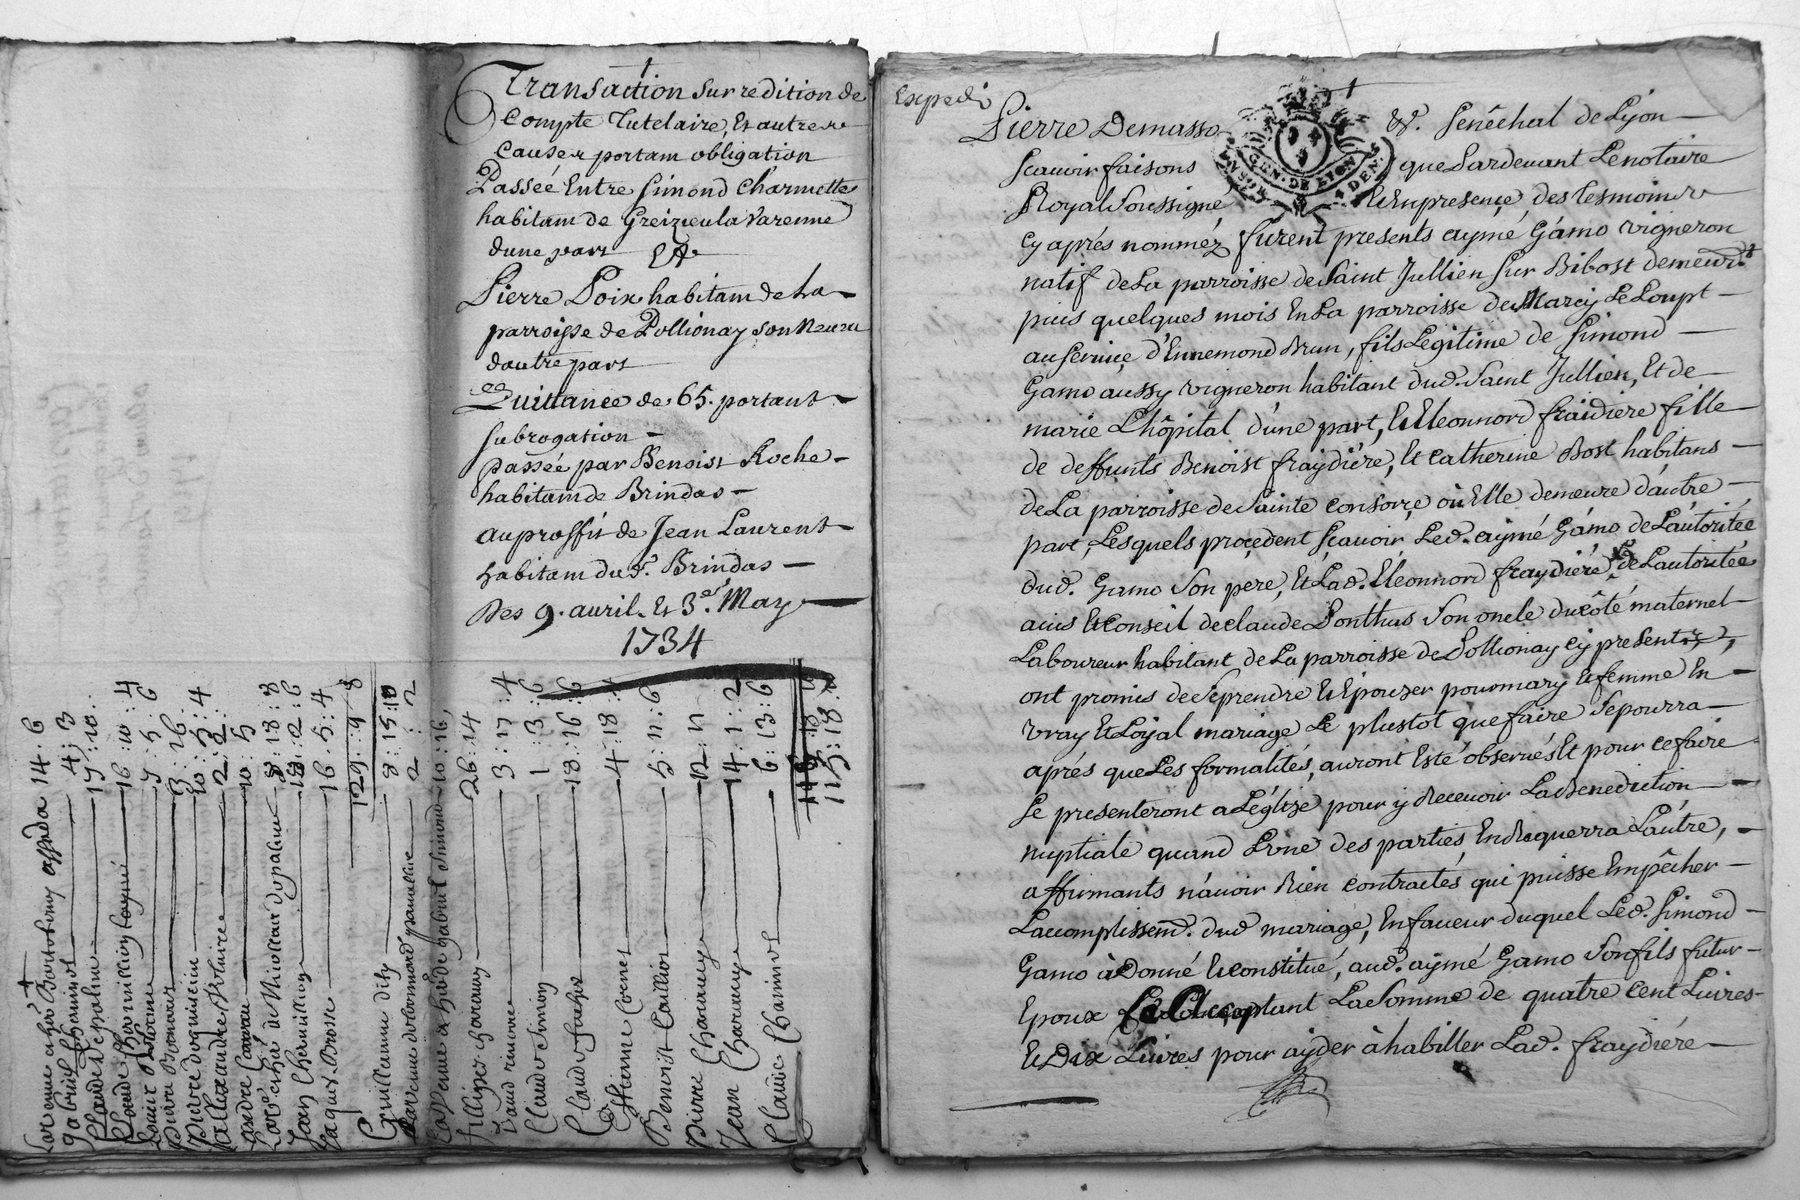 Transaction sur redition de
Compte Tutelaire, Et autres
Causes portam obligation
Passéé Entre Simond Charmette
habitam de Greizieu la Varenne
dune part Et
Pierre Poix habitam de La
parroisse de Pollionay son Neveu
dautre part
Quittance de 65. portant
subrogation
Passéé par Benoist Roche
habitam de Brindas
au proffit de Jean Laurent
habitam dud. Brindas
Des 9. avril. Et 3e. May
1734
14 : 6
Gabriel Chaminos 4 : 3
17 : 10
16 : 10 : 4
Pierre Bonnar
10 : 5
Jean Chermillion
Jaques Brosse 16 : 5 : 4
129 : 9 : 8
Guillaume Dity 8 : 15 : 10
2 : 2
26 : 14
3 : 17 : 4
Claude Simon 1 : 3 : 6
18 : 16 : 6
Estienne 4 : 18 : 4
Benoist Cailliot 5 : 11 : 6
Pierre Charvay 12 : 11
Jean Charvay 14 : 1 : 2
Claude Chaminos 6 : 13 : 6
115 : 18
Expedi
Pierre Demasso &c. Senêchal de Lyon
Scavoir faisons que Pardevant Le notaire
GEN. DE LYON
Royal Soussigné Et En presence des Tesmoins
Cy aprés nommés furent presents aymé Gamo vigneron
natif de La parroisse de Saint Jullien Sur Bibost demeurt.
puis quelques mois En La parroisse de Marcy Le Loupt
au Service d'Ennemond Brun, fils Legitime de Simond
Gamo aussy vigneron habitant dud. Saint Jullien, Et de
marie Lhôpital d'une part, Et Eleonnord fraidiere fille
de deffunts Benoist fraydiére, Et Catherine Bost habitans
de La parroisse de Sainte Consorce où Elle demeure d'autre
part, Lesquels procedent Scavoir Led. aymé Gamo de L'autoritée
dud. Gamo Son pere, Et Lad. Eléonnord fraydiéré de L'autoritée
avis Et Conseil de Claude Ponthus Son oncle du côté maternel
Laboureur habitant de La parroisse de Pollionay Cy present,
ont promis de Se prendre Et Epouzer pour mary Et femme En
vray Et Loyal mariage Le plustot que faire Se pourra
aprés que Les formalités auront Esté observéés Et pour ce faire
Se presenteront a L'église pour y Recevoir La Benediction
nuptiale quand L'une des parties En Requerra L'autre,
affirmants n'avoir Rien contractés qui puisse Empêcher
L'accomplissemt. dud mariage, En faveur duquel Led. Simond
Gamo à Donné Et Constitué, aud. aymé Gamo Son fils futur
Epoux acceptant La Somme de quatre Cent Livres
Et Dix Livres pour ayder à habiller Lad. fraydiéré